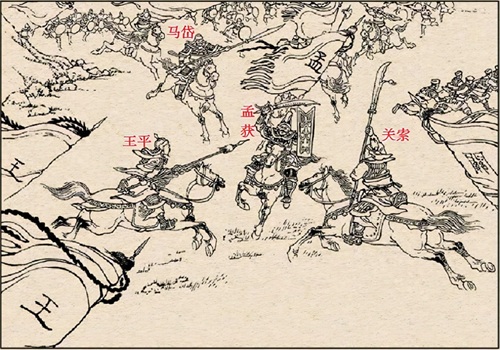 马岱
孟
获
王平
关索
孟
王
王